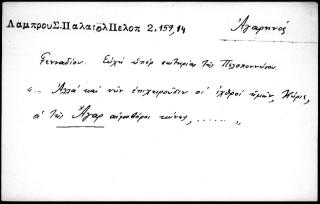 Λαμπρου Σ. Παλαιολ Πελοπ 2, 159, 14
Ἀγαρηνός
Γενναδίου. Εὐχὴ ὑπὲρ σωτηρίας τῆς Πελοποννήσου
"... Ἀλλὰ καὶ νῦν ἐπιχειροῦσιν οἱ ἐχθροὶ ἡμῶν, Κύριε,
οἱ τῆς Ἄγαρ αἱμοβόροι κύνες, ...... "